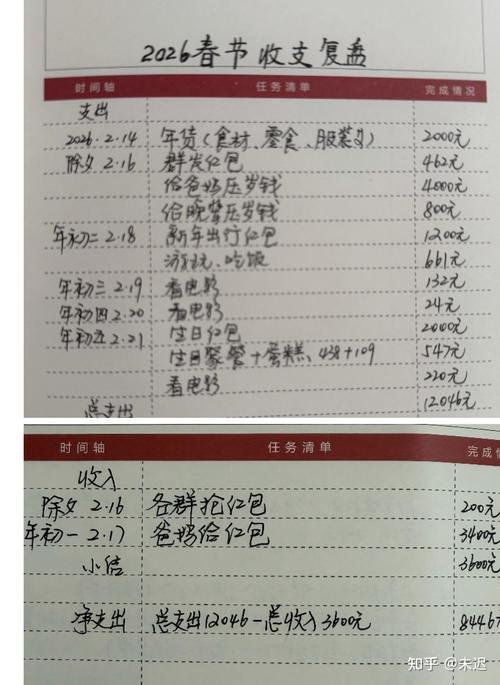 2026春节收支复盘
时间轴 任务清单 完成情况
支出
2026.2.14 年货(食材、零食、服装) 2000元
除夕 2.16 群发红包 462元
给爸妈压岁钱 4000元
给晚辈压岁钱 800元
年初二 2.18 新年出行红包 1200元
游玩、吃饭 661元
年初三 2.19 看电影 132元
年初四 2.20 看电影 24元
年初五 2.21 生日红包 2000元
生日聚餐+蛋糕、438+109 547元
看电影 220元
总支出 12046元
时间轴 任务清单 完成情
收入
除夕 2.16 各群抢红包 200元
年初一 2.17 爸妈给红包 3400元
小结 3600元
净支出 总支出12046-总收入3600元 8446元
知乎 @未迟